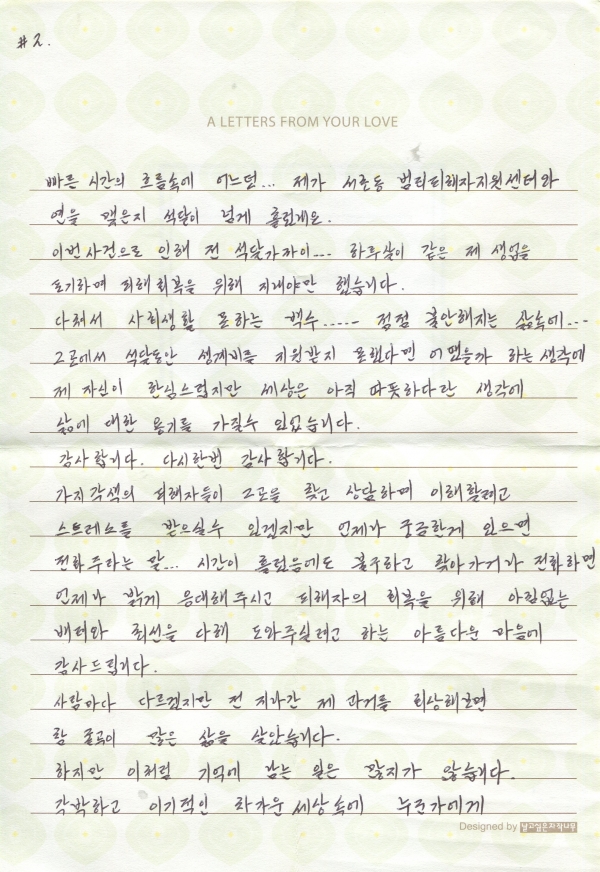 #2.
A LETTERS FROM YOUR LOVE
빠른 시간의 흐름속에 어느덧... 제가 서초동 범죄피해자지원센터와
연을 맺은지 석달이 넘게 흘렀네요.
이번사건으로 인해 전 석달가까이... 하루살이 같은 제 생업을
포기하며 피해회복을 위해 지내야만 했습니다.
다쳐서 사회생활 못하는 백수...... 점점 불안해지는 삶속에...
그곳에서 석달동안 생계비를 지원받지 못했다면 어땠을까 하는 생각에
제 자신이 한심스럽지만 세상은 아직 따뜻하다란 생각에
삶에 대한 용기를 가질수 있었습니다.
감사합니다. 다시한번 감사합니다.
가지각색의 피해자들이 그곳을 찾고 상담하며 이해할려고
스트레스를 받으실수 있겠지만 언제나 궁금한게 있으면
전화주라는 말... 시간이 흘렀음에도 불구하고 찾아가거나 전화하면
언제나 밝게 응대해주시고 피해자의 회복을 위해 아낌없는
배려와 최선을 다해 도와주실려고 하는 아름다운 마음에
감사드립니다.
사람마다 다르겠지만 전 지나간 제 과거를 회상해보면
참 굴곡이 많은 삶을 살았습니다.
하지만 이처럼 기억에 남는 일은 많지가 않습니다.
각박하고 이기적인 차가운 세상속에 누군가에게
Designed by 날고싶은자작나무